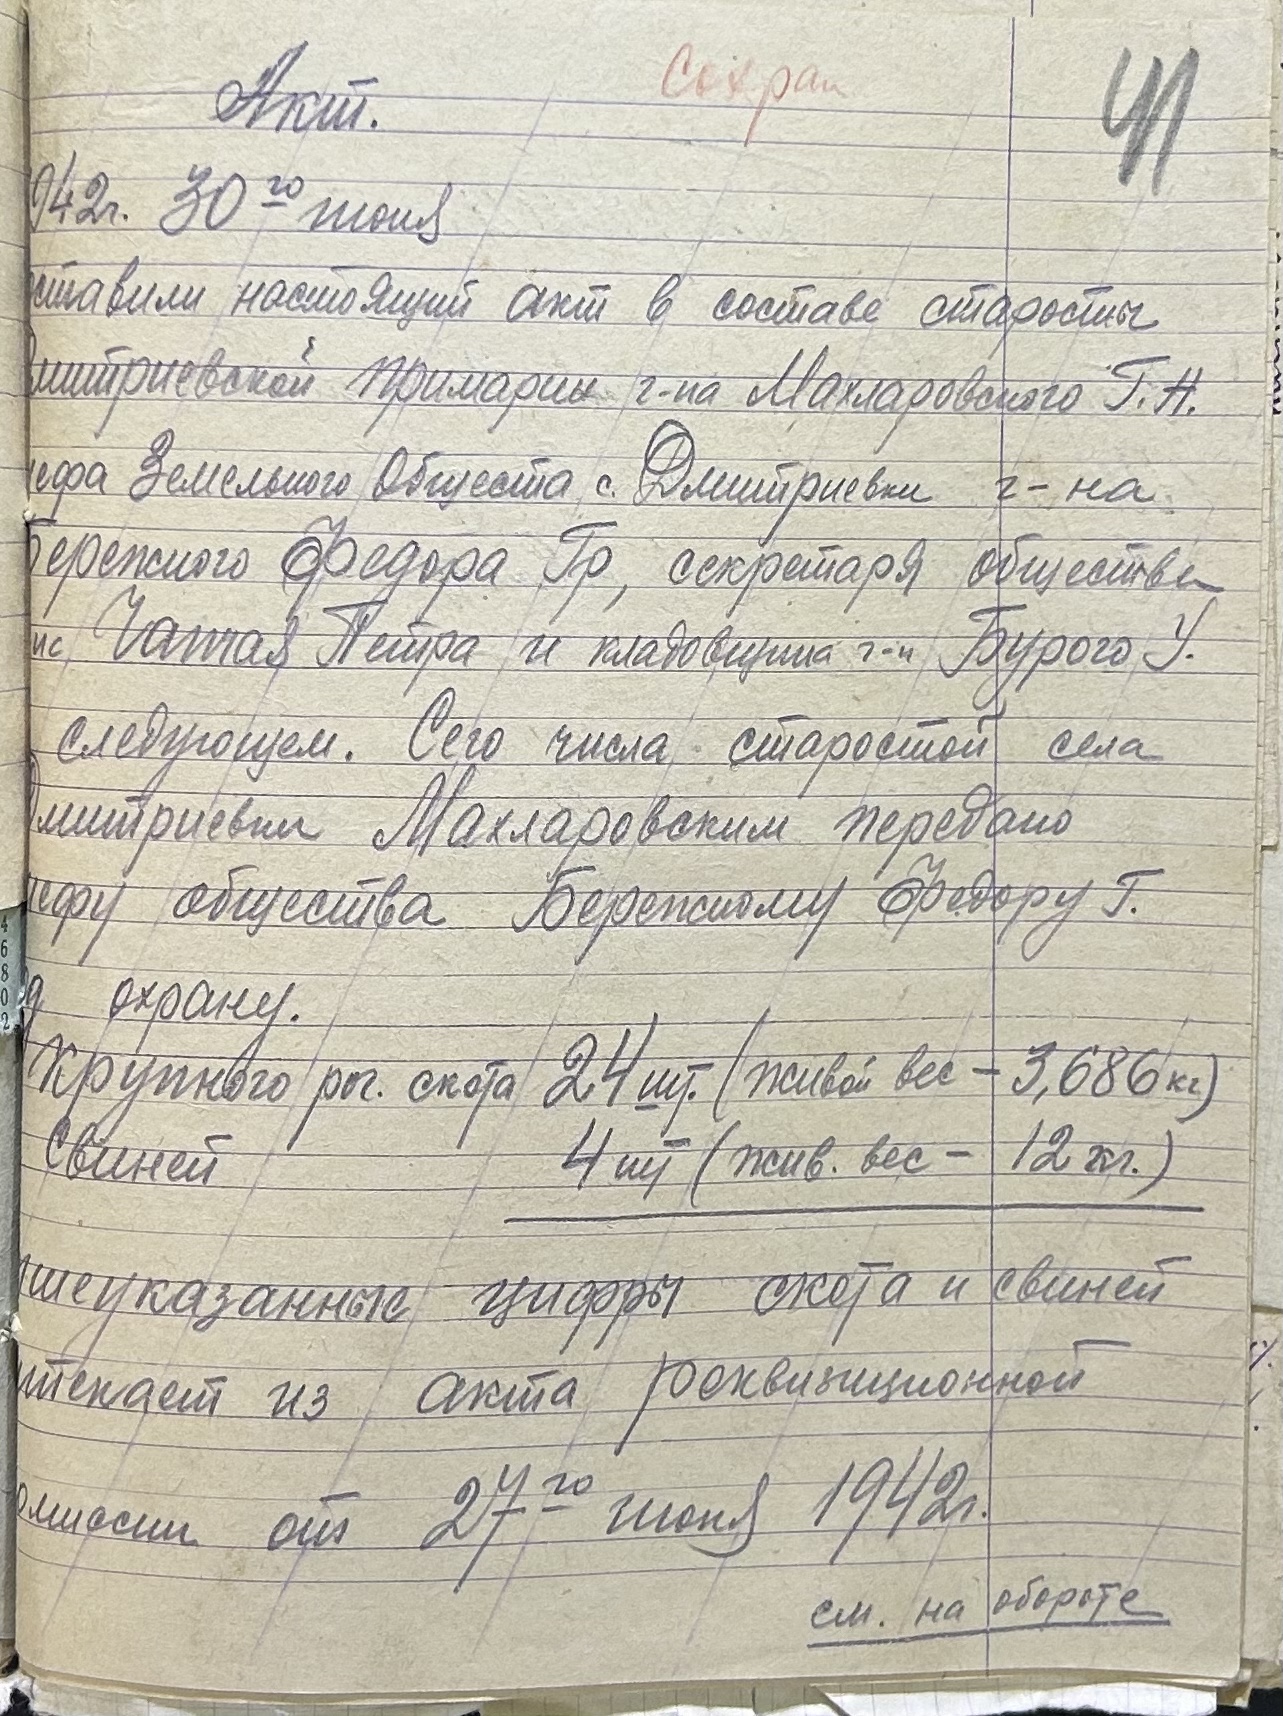 Сохран
41
Акт.
942г. 30го июня
оставили настоящий акт в составе старосты
митриевской примарии г-на Махларовского Г.Н.
ефа Земельного Общеста с. Дмитриевки г-на
Бережного Федора Гр, секретаря обществе
Чапчая Петра и кладовщика г-н Бурого У.
следующем. Сего числа старостой села
Дмитриевки Махларовским передано
ефу общества Бережному Федору Г.
охрану.
Крупного рог. скота 24 шт. (живой вес – 3,686 кг)
Свиней 4 шт (жив. вес – 12 кг.)
шеуказанные цифры скота и свиней
текает из акта реквизиционной
омиссии от 27го июня 1942г.
см. на обороте